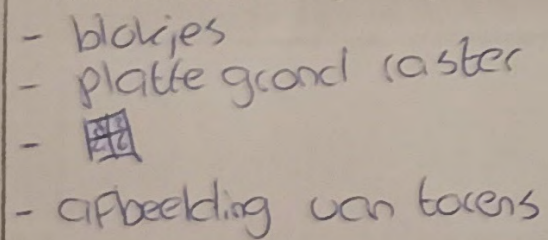 - blokjes
- platte grond raster
-
- afbeelding van torens